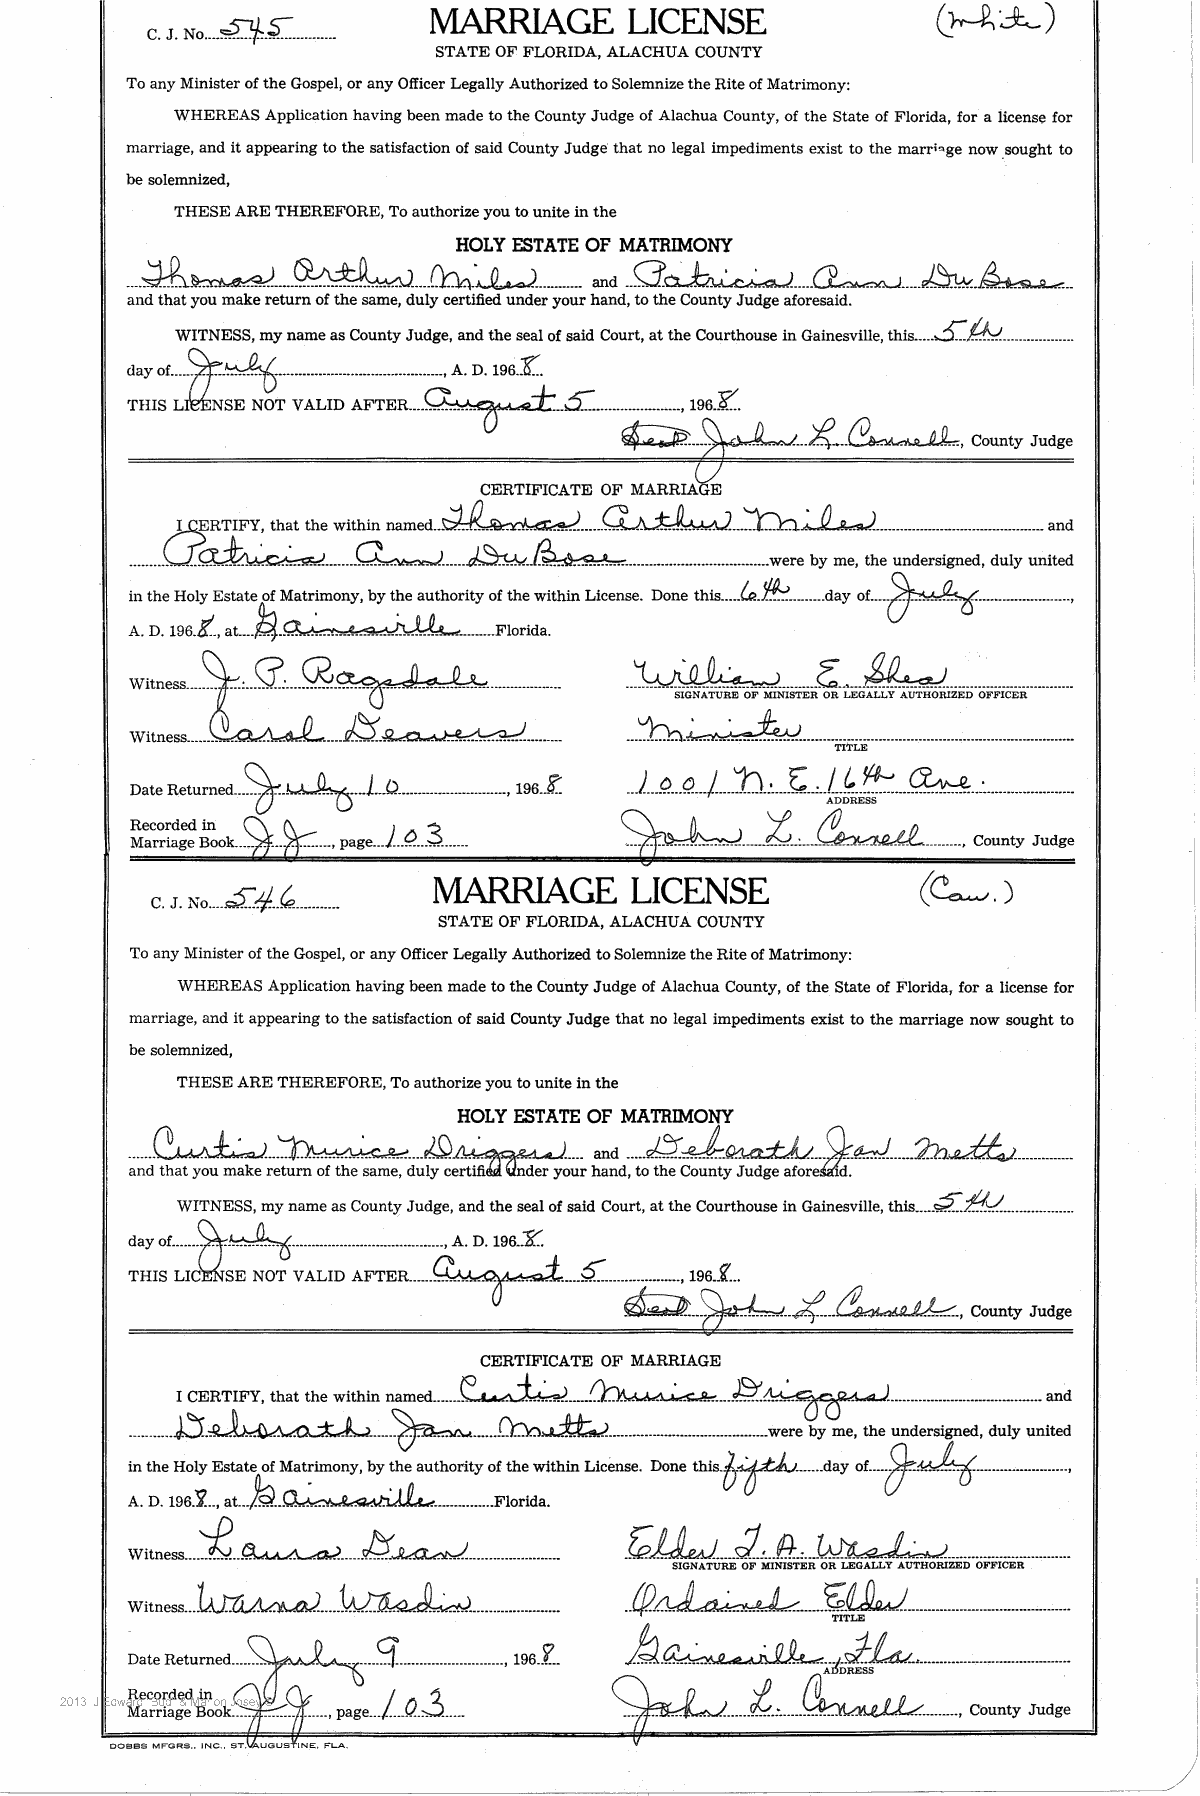 C. J. No. 545 MARRIAGE LICENSE (White)
STATE OF FLORIDA, ALACHUA COUNTY
To any Minister of the Gospel, or any Officer Legally Authorized to Solemnize the Rite of Matrimony:
WHEREAS Application having been made to the County Judge of Alachua County, of the State of Florida, for a license for
marriage, and it appearing to the satisfaction of said County Judge that no legal impediments exist to the marriage now sought to
be solemnized,
THESE ARE THEREFORE, To authorize you to unite in the
HOLY ESTATE OF MATRIMONY
Thomas Arthur Miles and Patricia Ann DuBose
and that you make return of the same, duly certified under your hand, to the County Judge aforesaid.
WITNESS, my name as County Judge, and the seal of said Court, at the Courthouse in Gainesville, this 5th
day of July, A. D. 1968.
THIS LICENSE NOT VALID AFTER August 5, 1968.
Seal John L Connell, County Judge
CERTIFICATE OF MARRIAGE
I CERTIFY, that the within named Thomas Arthur Miles and
Patricia Ann DuBose were by me, the undersigned, duly united
in the Holy Estate of Matrimony, by the authority of the within License. Done this 6th day of July,
A. D. 1968, at Gainesville Florida.
Witness J. P. Ragsdale William E. Shea
SIGNATURE OF MINISTER OR LEGALLY AUTHORIZED OFFICER
Witness Carol Deavers Minister
TITLE
Date Returned July 10, 1968 1001 N. E. 16th Ave.
ADDRESS
Recorded in
Marriage Book JJ, page 103 John L. Connell, County Judge
C. J. No. 546 MARRIAGE LICENSE (Cau.)
STATE OF FLORIDA, ALACHUA COUNTY
To any Minister of the Gospel, or any Officer Legally Authorized to Solemnize the Rite of Matrimony:
WHEREAS Application having been made to the County Judge of Alachua County, of the State of Florida, for a license for
marriage, and it appearing to the satisfaction of said County Judge that no legal impediments exist to the marriage now sought to
be solemnized,
THESE ARE THEREFORE, To authorize you to unite in the
HOLY ESTATE OF MATRIMONY
Curtis Murice Driggers and Deborath Jan Metts
and that you make return of the same, duly certified under your hand, to the County Judge aforesaid.
WITNESS, my name as County Judge, and the seal of said Court, at the Courthouse in Gainesville, this 5th
day of July, A. D. 1968.
THIS LICENSE NOT VALID AFTER August 5, 1968.
Seal John L Connell, County Judge
CERTIFICATE OF MARRIAGE
I CERTIFY, that the within named Curtis Murice Driggers and
Deborath Jan Metts were by me, the undersigned, duly united
in the Holy Estate of Matrimony, by the authority of the within License. Done this fifth day of July,
A. D. 1968, at Gainesville Florida.
Witness Laura Dean Elder T. A. Wasdin
SIGNATURE OF MINISTER OR LEGALLY AUTHORIZED OFFICER
Witness Warna Wasdin Ordained Elder
TITLE
Date Returned July 9, 1968 Gainesville, Fla.
ADDRESS
2013 J Edward "Bud" & Marion Josey
Recorded in
Marriage Book JJ, page 103 John L. Connell, County Judge
DOBBS MFGRS., INC., ST. AUGUSTINE, FLA.